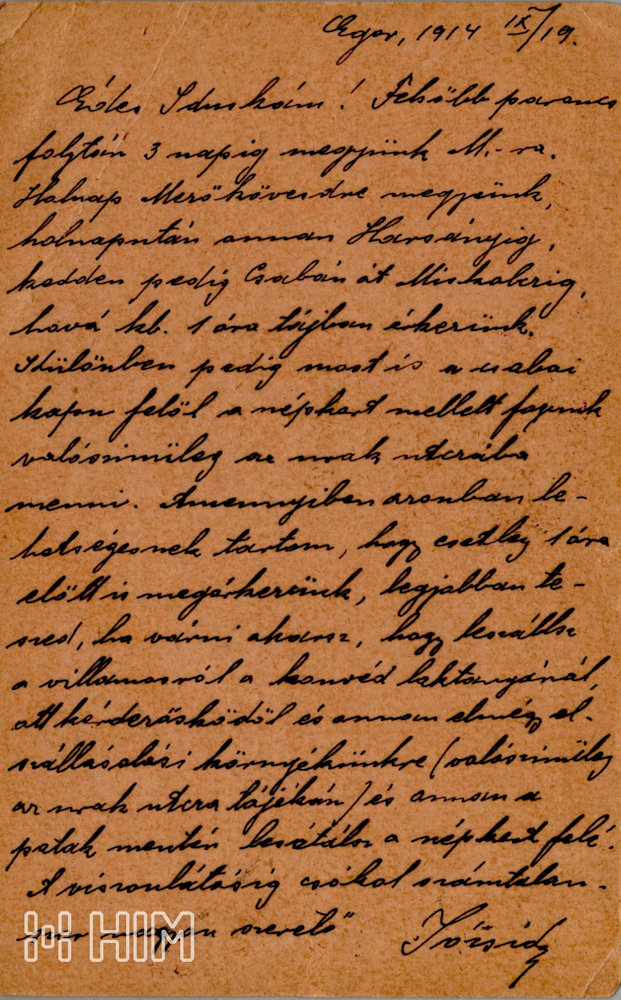 Eger, 1914 IX/19.
Édes Iduskám! Felsőbb parancs
folytán 3 napig megyünk M.-ra.
Holnap Mezőkövesdre megyünk,
holnapután onnan Harsányig,
kedden pedig Csabán át Miskolczig,
hová kb. 1 óra tájban érkezünk.
Különben pedig most is a csabai
kapu felöl a népkert mellett fogunk
valószinüleg az urak utczába
menni. Amennyiben azonban le-
hetségesnek tartom, hogy esetleg 1 óra
előtt is megérkezünk, legjobban te-
szed, ha várni akarsz, hogy leszállsz
a villamosról a honvéd laktanyánál,
ott kérdezősködöl és onnan elmégy el-
szállásolási környékünkre (valószinüleg
az urak utcza tájékán) és onnan a
patak mentén lesétálsz a népkert felé.
A viszontlátásig csókol számtalan-
szor nagyon szerető Józsid
HIM